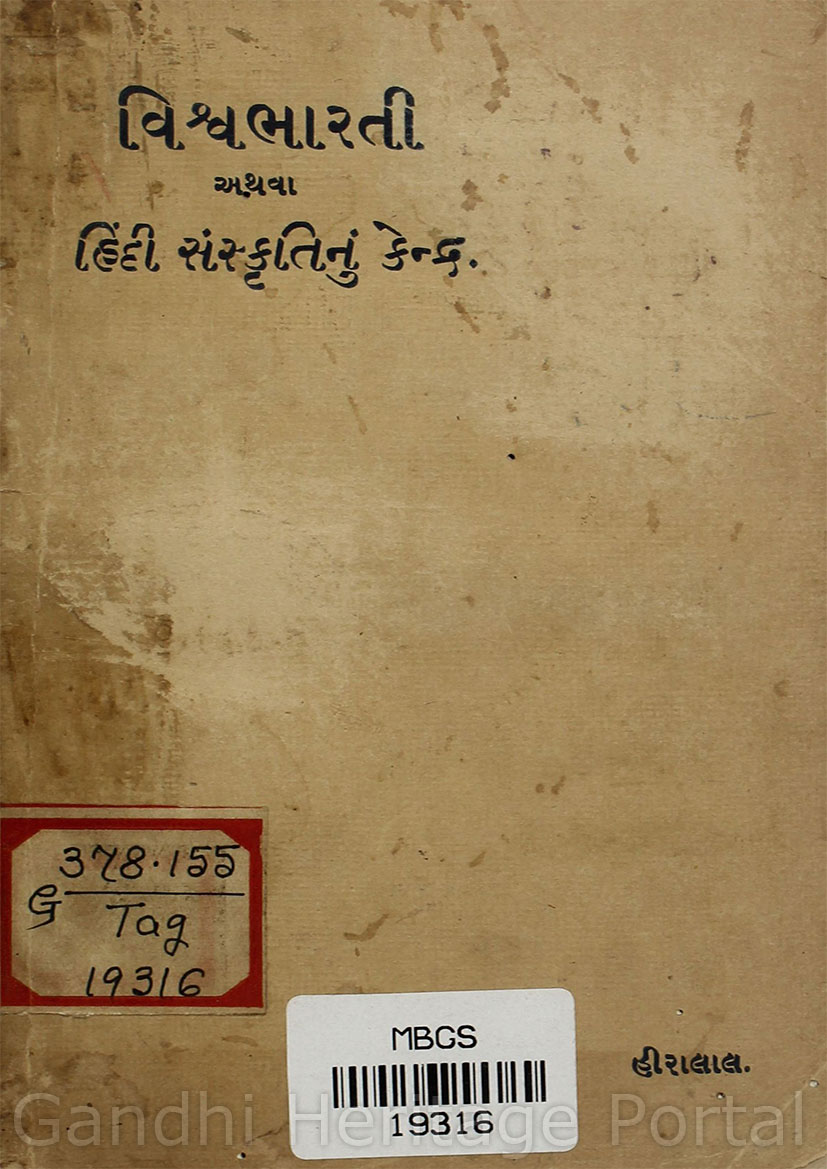 વિશ્વભારતી
અથવા
હિંદી સંસ્કૃતિનું કેન્દ્ર.
378.155
G
Tag
19316
MBGS
19316
હીરાલાલ.
Gandhi Heritage Portal